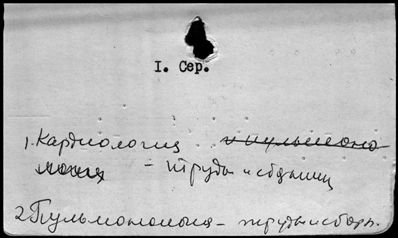 I. Сер.
1. Кардиология и пульмоно
логия - труды и
2. Пульмонология - труды и сборн.